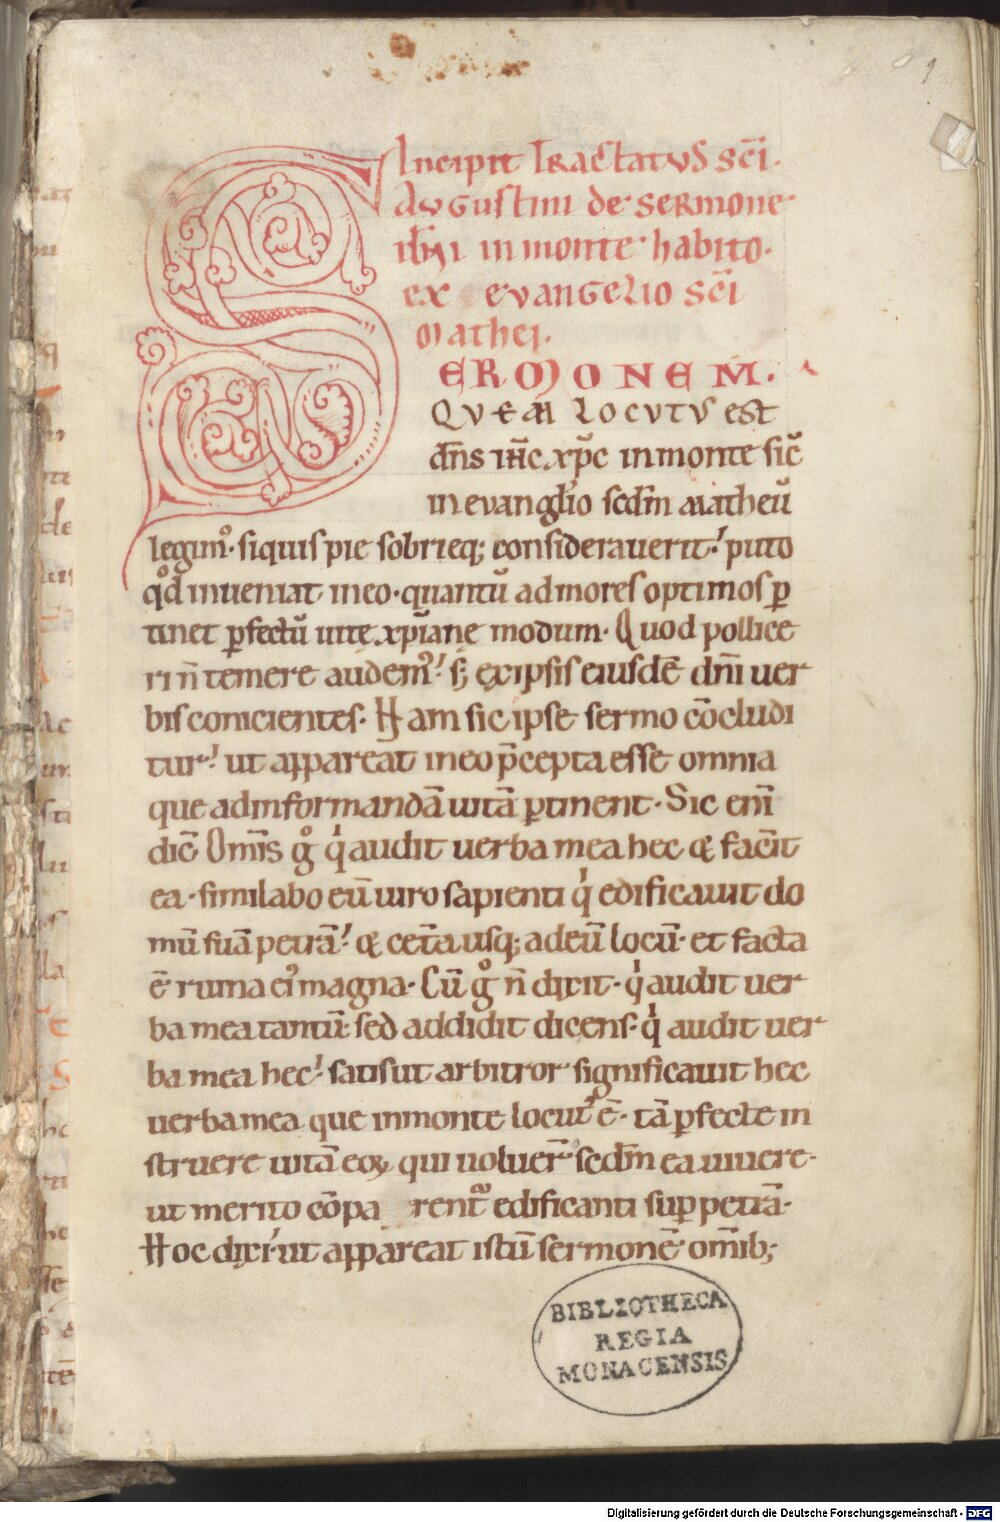 1
Incipit tractatus sc̄i.
Augustini de sermone
in monte habito.
ex evangelio sc̄i
Mathei.
SERMONEM.
QVEM LOCVTV est
dn̄s ih̄c xp̄c in monte sic̄
in evanglio scd̄m matheū
legim᷒. siquis pie sobrieq; considerauerit. puto
qd inueniat in eo. quantū ad mores optimos ꝑ
tinet ꝑfectū uite xp̄iane modum. Quod pollice
ri n̄ temere audem᷒. s; ex ipsis eiusdē dn̄i uer
bis conicientes. Nam sic ipse sermo cōcludi
tur. ut appareat in eo p̄cepta esse omnia
que ad informandā uitā ꝑtinent. Sic eni̅
dic̄ Om̄is gͦ qͥ audit uerba mea hec & facit
ea. similabo eū uiro sapienti qͥ edificauit do
mū suā petrā. & cet̄a usq; ad eū locū. et facta
ē ruina ei᷒ magna. Cū gͦ n̄ dixit. qͥ audit uer
ba mea tantū. sed addidit dicens. qͥ audit uer
ba mea hec. satis ut arbitror significauit hec
uerba mea que in monte locut᷒ ē. tā ꝑfecte in
struere uitā eoꝝ qui uoluer̄ scd̄m ea uiuere.
ut merito cōpa rent᷑ edificanti suꝑ petrā.
Hoc dixi. ut appareat istū sermonē om̄ib;
BIBLIOTHECA
REGIA
MONACENSIS
Digitalisierung gefördert durch die Deutsche Forschungsgemeinschaft - DFG